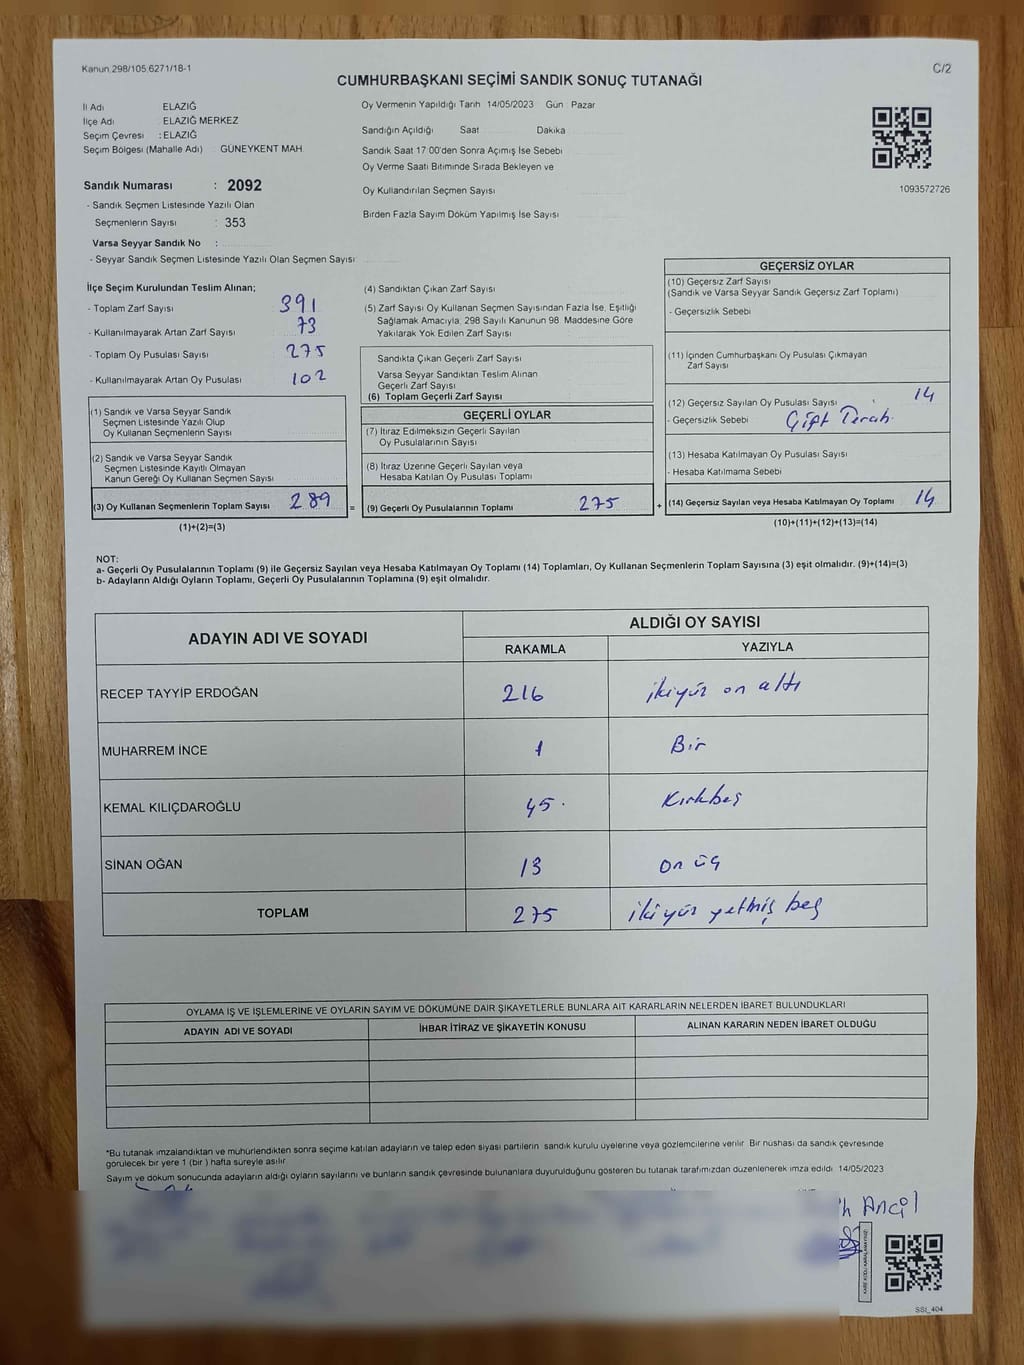 Kanun.298/105.6271/18-1
C/2
CUMHURBAŞKANI SEÇİMİ SANDIK SONUÇ TUTANAĞI
İl Adı ELAZIĞ
İlçe Adı : ELAZIĞ MERKEZ
Seçim Çevresi : ELAZIĞ
Seçim Bölgesi (Mahalle Adı) : GÜNEYKENT MAH.
Sandık Numarası : 2092
- Sandık Seçmen Listesinde Yazılı Olan
Seçmenlerin Sayısı : 353
Varsa Seyyar Sandık No :
- Seyyar Sandık Seçmen Listesinde Yazılı Olan Seçmen Sayısı
Oy Vermenin Yapıldığı Tarih 14/05/2023 Gün Pazar
Sandığın Açıldığı Saat Dakika
Sandık Saat 17:00'den Sonra Açımış İse Sebebi
Oy Verme Saati Bitiminde Sırada Bekleyen ve
Oy Kullandırılan Seçmen Sayısı
Birden Fazla Sayım Döküm Yapılmış İse Sayısı
1093572726
İlçe Seçim Kurulundan Teslim Alınan;
- Toplam Zarf Sayısı 391
- Kullanılmayarak Artan Zarf Sayısı 73
- Toplam Oy Pusulası Sayısı 275
- Kullanılmayarak Artan Oy Pusulası 102
(1) Sandık ve Varsa Seyyar Sandık
Seçmen Listesinde Yazılı Olup
Oy Kullanan Seçmenlerin Sayısı
(2) Sandık ve Varsa Seyyar Sandık
Seçmen Listesinde Kayıtlı Olmayan
Kanun Gereği Oy Kullanan Seçmen Sayısı
(3) Oy Kullanan Seçmenlerin Toplam Sayısı 289 =
(1)+(2)=(3)
(4) Sandıktan Çıkan Zarf Sayısı
(5) Zarf Sayısı Oy Kullanan Seçmen Sayısından Fazla İse, Eşitliği
Sağlamak Amacıyla, 298 Sayılı Kanunun 98. Maddesine Göre
Yakılarak Yok Edilen Zarf Sayısı
Sandıkta Çıkan Geçerli Zarf Sayısı
Varsa Seyyar Sandıktan Teslim Alınan
Geçerli Zarf Sayısı
(6) Toplam Geçerli Zarf Sayısı
GEÇERLİ OYLAR
(7) İtiraz Edilmeksizin Geçerli Sayılan
Oy Pusulalarının Sayısı
(8) İtiraz Üzerine Geçerli Sayılan veya
Hesaba Katılan Oy Pusulası Toplamı
(9) Geçerli Oy Pusulalarının Toplamı 275 +
GEÇERSİZ OYLAR
(10) Geçersiz Zarf Sayısı
(Sandık ve Varsa Seyyar Sandık Geçersiz Zarf Toplamı)
- Geçersizlik Sebebi
(11) İçinden Cumhurbaşkanı Oy Pusulası Çıkmayan
Zarf Sayısı
(12) Geçersiz Sayılan Oy Pusulası Sayısı 14
- Geçersizlik Sebebi Çift Tercih
(13) Hesaba Katılmayan Oy Pusulası Sayısı
- Hesaba Katılmama Sebebi
(14) Geçersiz Sayılan veya Hesaba Katılmayan Oy Toplamı 14
(10)+(11)+(12)+(13)=(14)
NOT:
a- Geçerli Oy Pusulalarının Toplamı (9) ile Geçersiz Sayılan veya Hesaba Katılmayan Oy Toplamı (14) Toplamları, Oy Kullanan Seçmenlerin Toplam Sayısına (3) eşit olmalıdır. (9)+(14)=(3)
b- Adayların Aldığı Oyların Toplamı, Geçerli Oy Pusulalarının Toplamına (9) eşit olmalıdır.
ADAYIN ADI VE SOYADI
ALDIĞI OY SAYISI
RAKAMLA YAZIYLA
RECEP TAYYİP ERDOĞAN 216 ikiyüz on altı
MUHARREM İNCE 1 Bir
KEMAL KILIÇDAROĞLU 45 Kırkbeş
SİNAN OĞAN 13 on üç
TOPLAM 275 ikiyüz yetmiş beş
OYLAMA İŞ VE İŞLEMLERİNE VE OYLARIN SAYIM VE DÖKÜMÜNE DAİR ŞİKAYETLERLE BUNLARA AİT KARARLARIN NELERDEN İBARET BULUNDUKLARI
ADAYIN ADI VE SOYADI İHBAR İTİRAZ VE ŞİKAYETİN KONUSU ALINAN KARARIN NEDEN İBARET OLDUĞU
*Bu tutanak imzalandıktan ve mühürlendikten sonra seçime katılan adayların ve talep eden siyasi partilerin sandık kurulu üyelerine veya gözlemcilerine verilir. Bir nüshası da sandık çevresinde
görülecek bir yere 1 (bir) hafta süreyle asılır
Sayım ve döküm sonucunda adayların aldığı oyların sayılarını ve bunların sandık çevresinde bulunanlara duyurulduğunu gösteren bu tutanak tarafımızdan düzenlenerek imza edildi. 14/05/2023
SSI_404